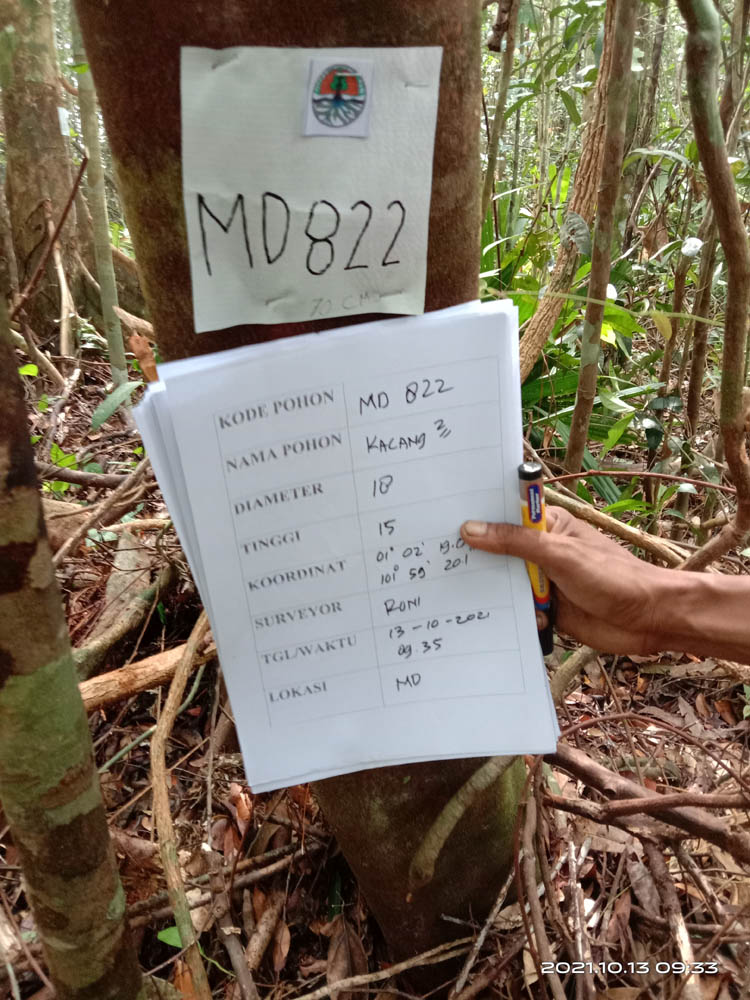 MD 822
70 CM
KODE POHON MD 822
NAMA POHON KACANG 2
DIAMETER 18
TINGGI 15
KOORDINAT 01° 02' 19.0
101° 59' 20.1
SURVEYOR RONI
TGL/WAKTU 13-10-2021
09.35
LOKASI MD
2021.10.13 09:33